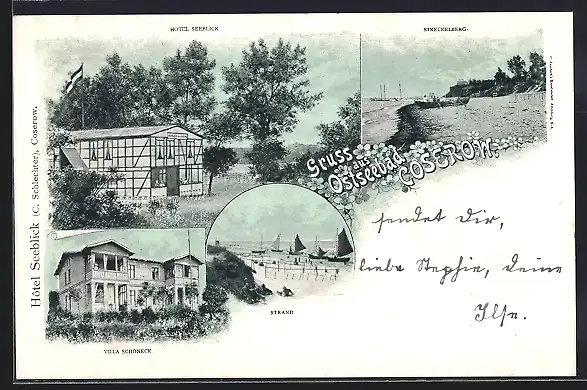 HOTEL SEEBLICK
STRECKELBERG.
Gruss
aus
Ostseebad
COSEROW.
Hôtel Seeblick (C. Schlechter), Coserow.
sendet Dir,
liebe Stephie, Deine
Ilse.
STRAND
VILLA SCHÖNECK